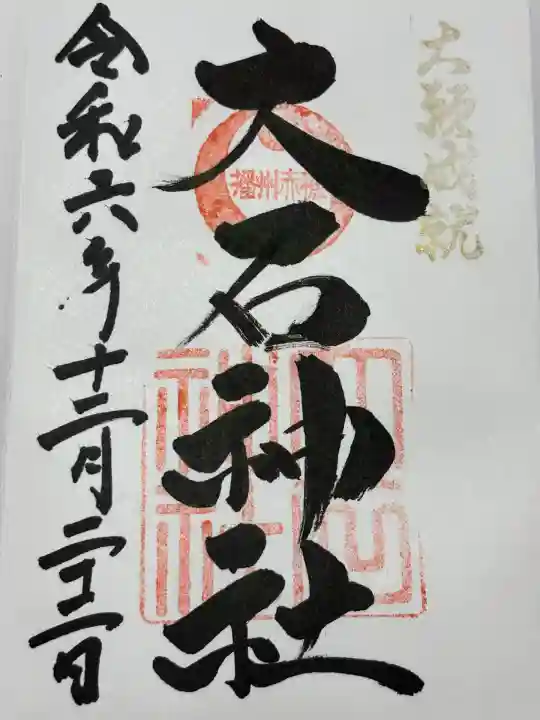 大願成就
播州赤穂
大石神社
令和六年十二月二十二日